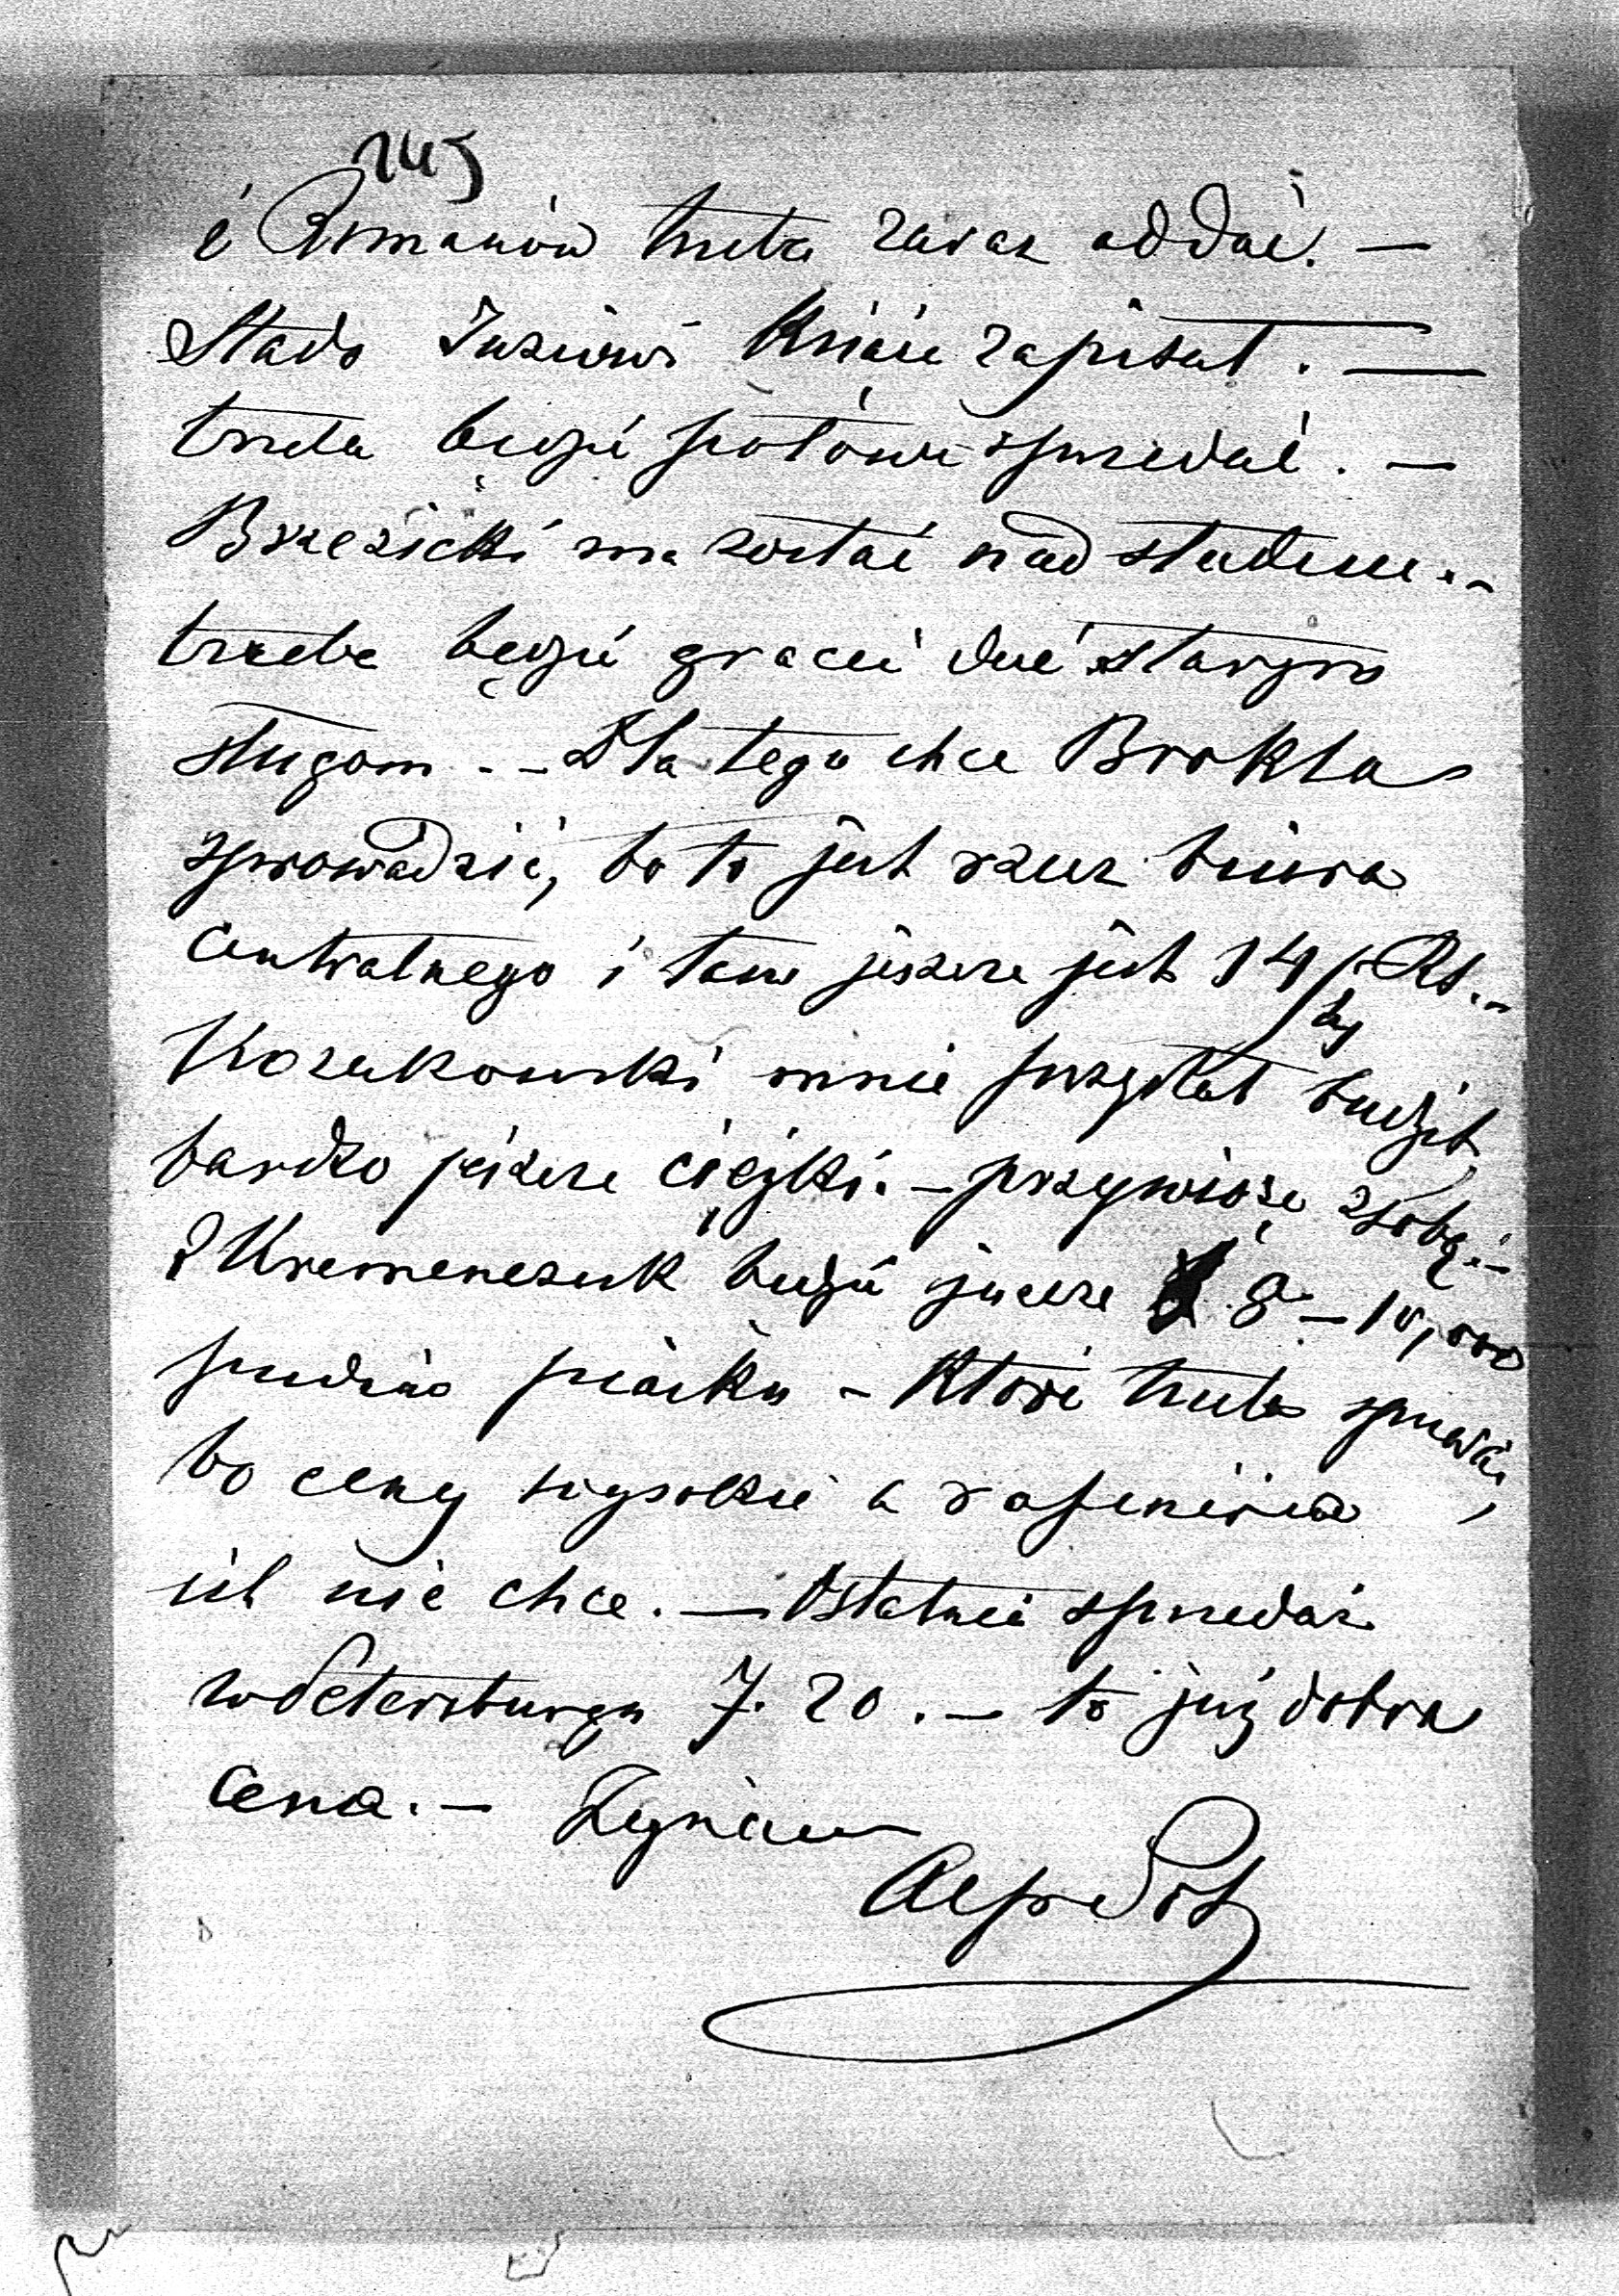 145
i Romanów trzeba zaraz oddać. —
Stado Juziowi Książe zapisał. —
trzeba będzie połowe sprzedać. —
Brzezicki ma zostać nad stadem. -
trzeba będzie gracei dać starym
sługom. - Dla tego chce Brokla
sprowadzić, bo to jest rzecz biura
centralnego i tam jeszcze jest 14/ Rs. -
Kozakowski mnie przysłał budżet
bardzo jeszcze ciężki. - przywiozę z sobą. -
z Kremenczuk będzie jeszcze 8 - 10,000
pudów piasku - które trzeba sprzedać,
bo ceny wysokie a rafineria
ich nie chce. — Ostatnia sprzedaż
w Petersburgu 7. 20. — to już dobra
cena. — Żegnam
Alfred Pot